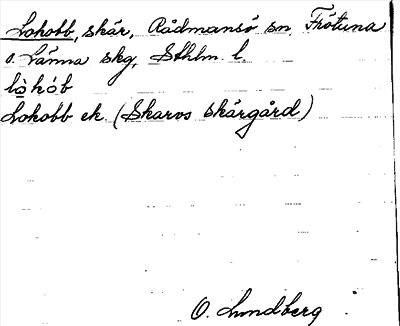 Lohobb, skär, Rådmansö sn, Frötuna
o. Länna skg, Sthlm. l.
lòhób
Lohobb ek. (Skarvs skärgård)
O. Lundberg